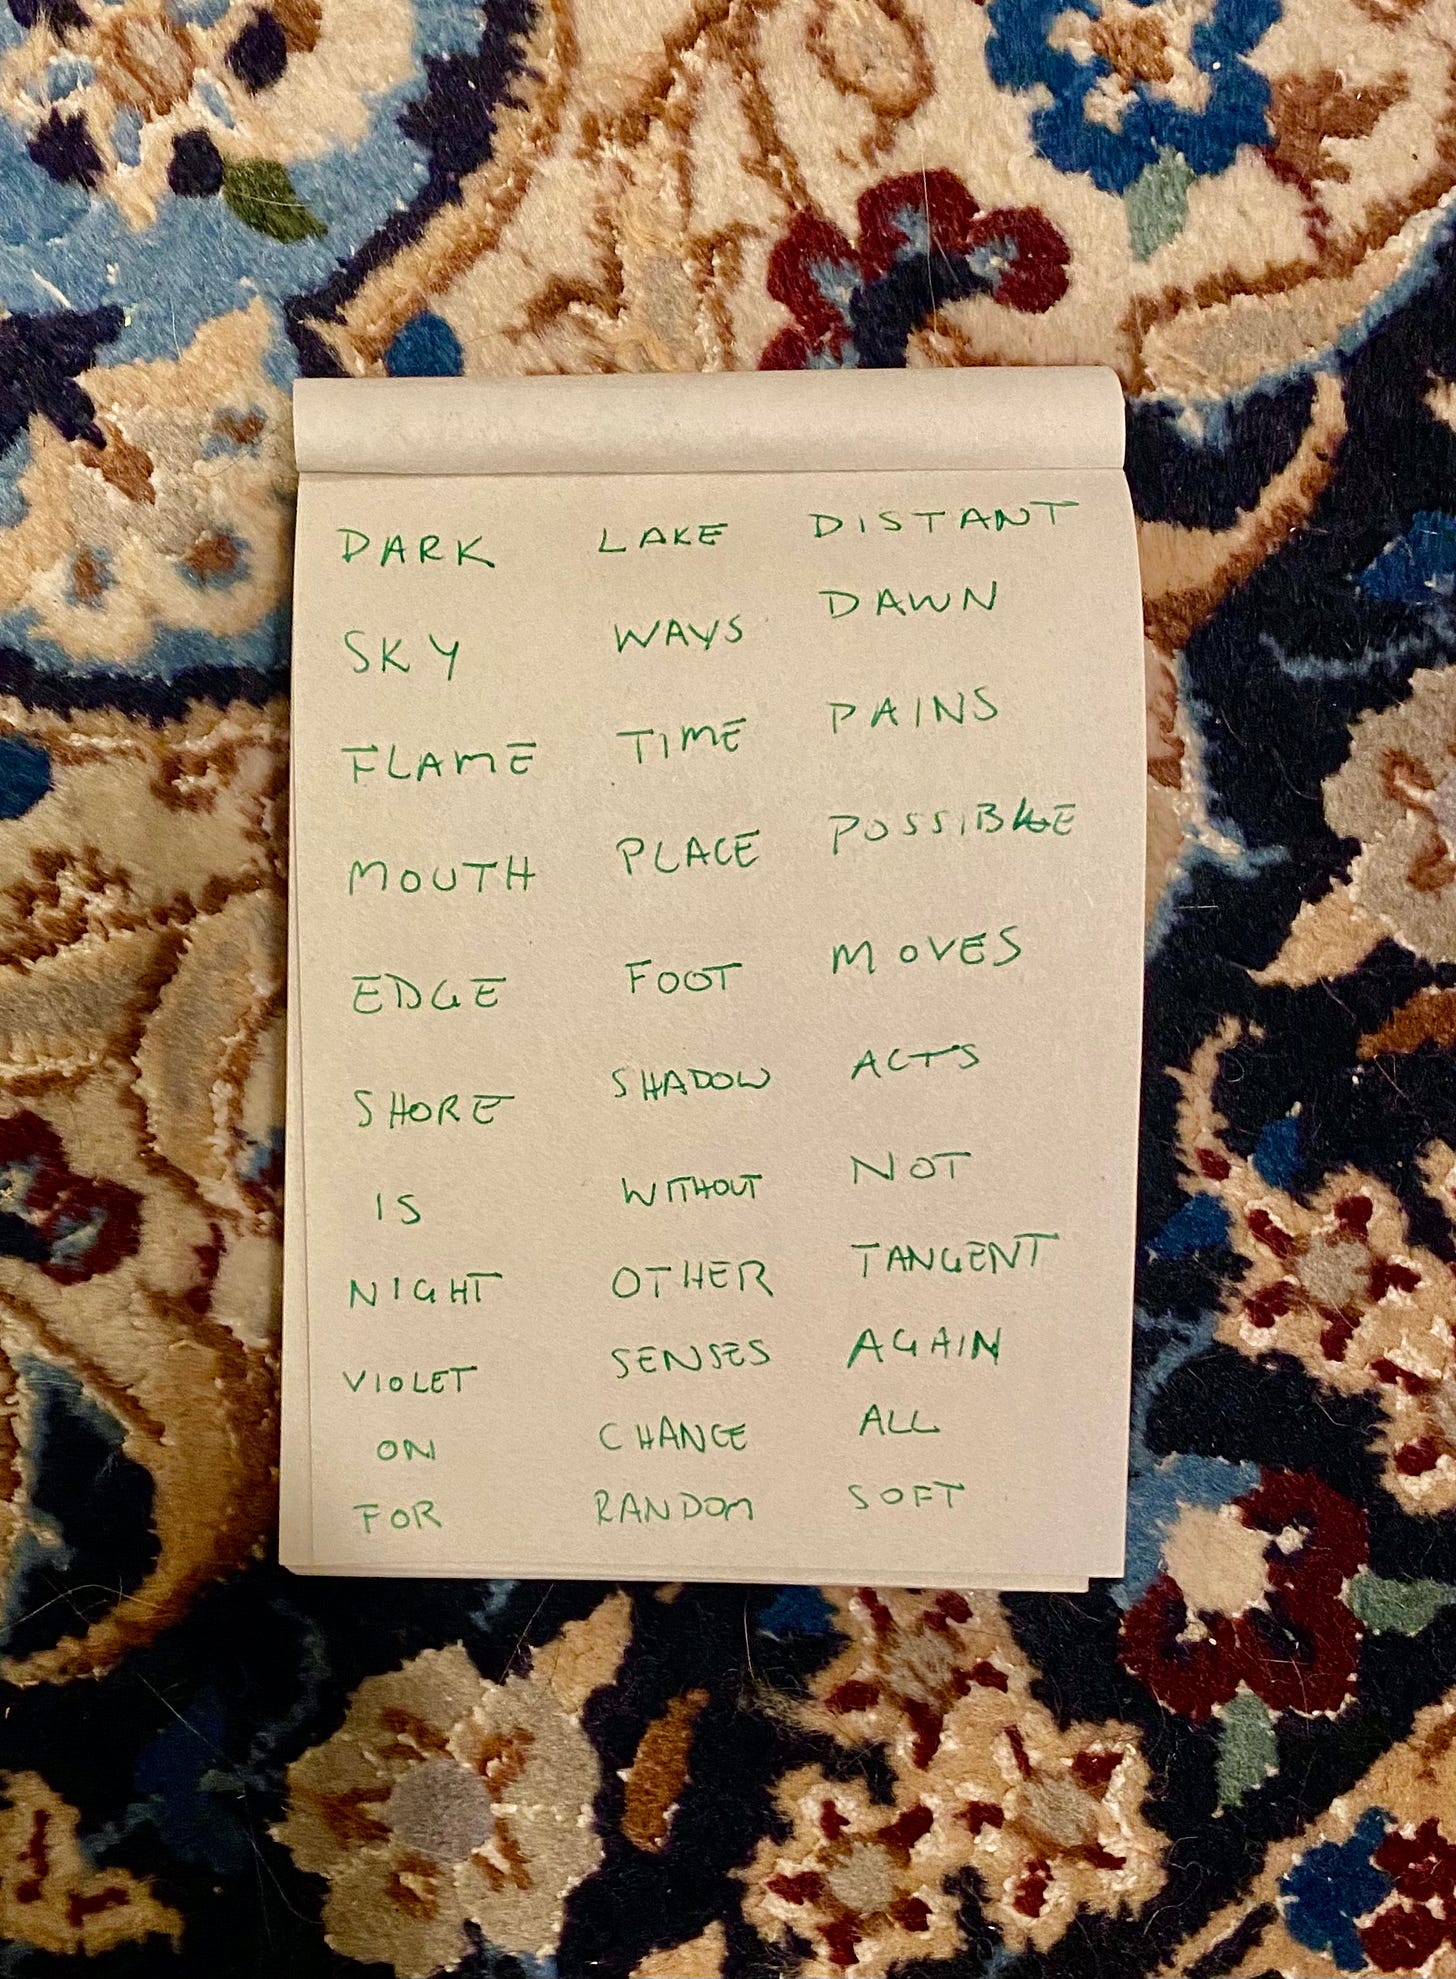 DARK LAKE DISTANT
SKY WAYS DAWN
FLAME TIME PAINS
MOUTH PLACE POSSIBLE
EDGE FOOT MOVES
SHORE SHADOW ACTS
IS WITHOUT NOT
NIGHT OTHER TANGENT
VIOLET SENSES AGAIN
ON CHANGE ALL
FOR RANDOM SOFT